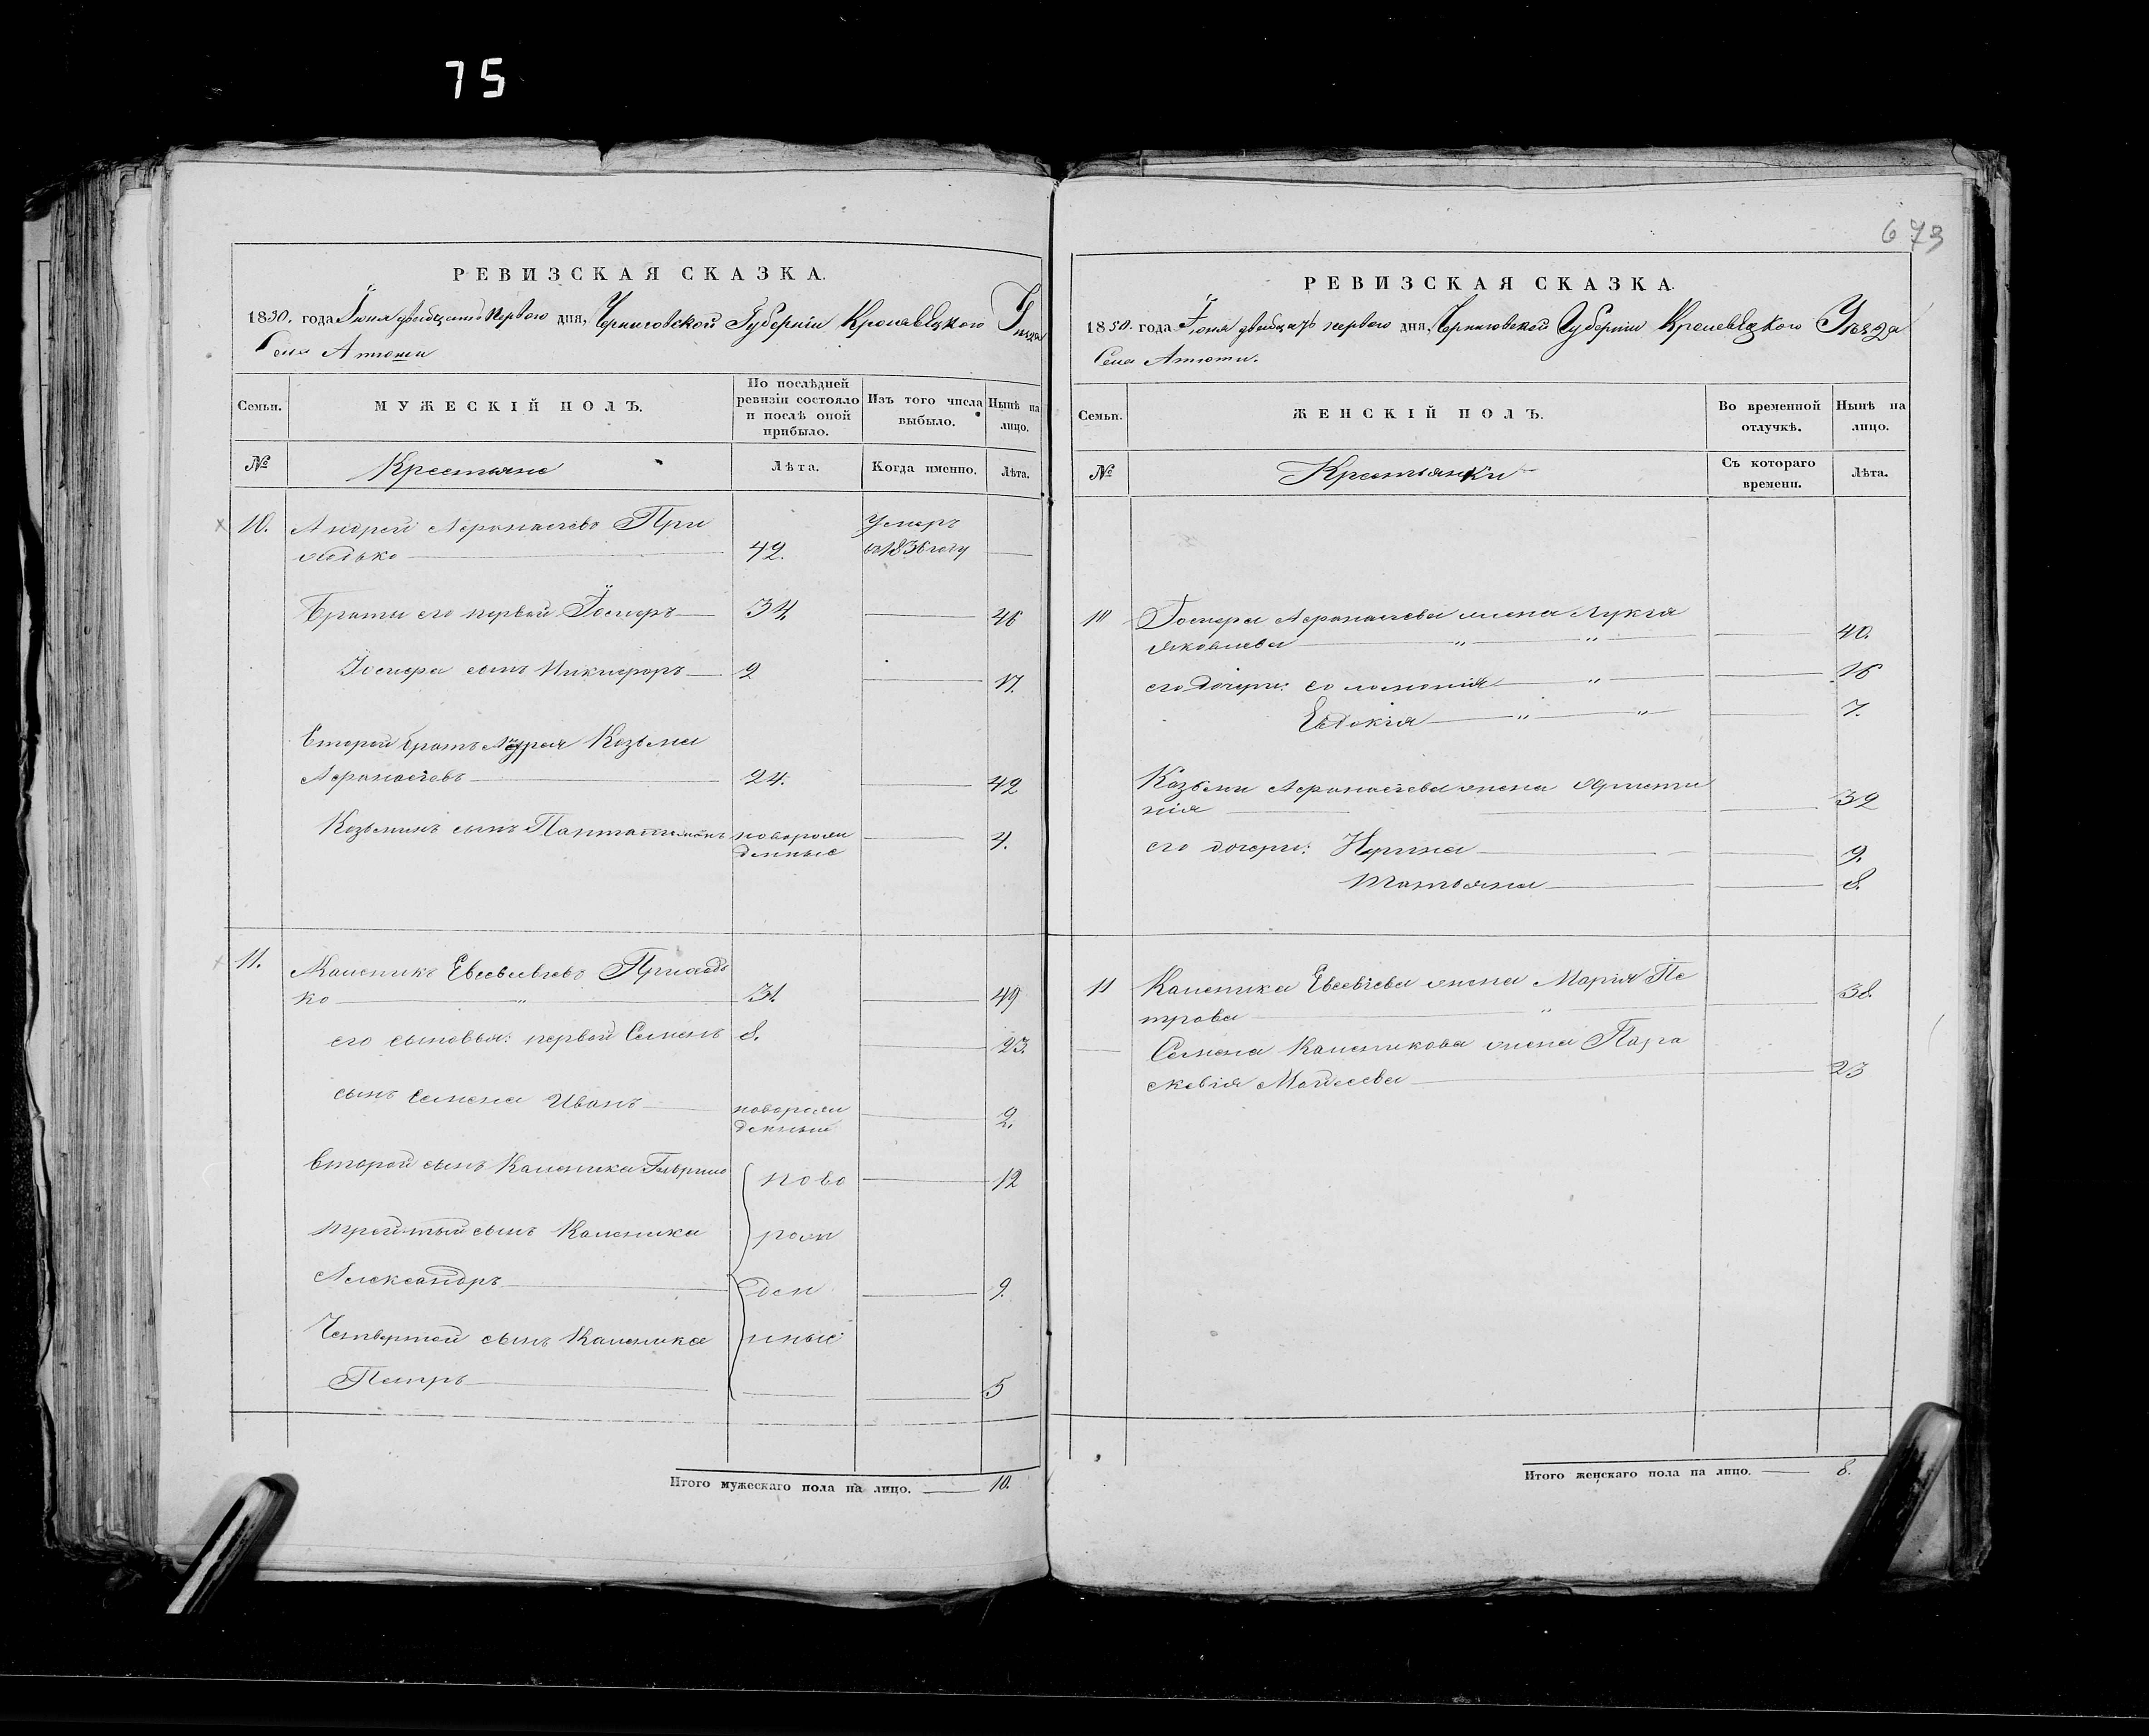 75
673
РЕВИЗСКАЯ СКАЗКА.
1850. года Іюня двадцать перваго дня, Черниговской Губерніи Кролевецкаго Уѣзда
Села Атюши
Семьи.
МУЖЕСКІЙ ПОЛЪ.
По послѣдней ревизіи состояло и послѣ оной прибыло.
Изъ того числа выбыло.
Нынѣ на лицо.
№
Крестьяне
Лѣта.
Когда именно.
Лѣта.
10. Андрей Афанасіевъ При
ходько 42. Умеръ въ 1836 году
Браты его первой Іосифъ 34. 46
Іосифа сынъ Никифоръ 2 17.
Второй братъ Андрея Козьма
Афанасіевъ 24. 42
Козьминъ сынъ новорож
денные 4.
11. Каленикъ Евсевіевъ Приходь
ко 31. 49
его сыновья: первой Семенъ 8. 23.
сынъ Семена Иванъ новорож
денный 2.
Второй сынъ Каленика Гаврило ново 12
третый сынъ Каленика рож
Александръ ден 9.
Четвертой сынъ Каленика ные
Петръ 5
Итого мужескаго пола на лицо. 10.
РЕВИЗСКАЯ СКАЗКА.
1850. года Іюня двадцать перваго дня, Черниговской Губерніи Кролевецкаго Уѣзда
Села Атюши.
Семьи.
ЖЕНСКІЙ ПОЛЪ.
Во временной отлучкѣ.
Нынѣ на лицо.
№
Крестьянки
Съ котораго времени.
Лѣта.
10 Іосифа Афанасіева жена Лукія
Яковлева 40.
его дочери: Соломонія 16
Евдокія 7.
Козьмы Афанасіева жена Христи
нія 32
его дочери: Ирина 9.
Татьяна 8.
11 Каленика Евсевіева жена Марія Пе
трова 38.
Семена Каленикова жена Пара
скевія Моисеева 23
Итого женскаго пола на лицо. 8.